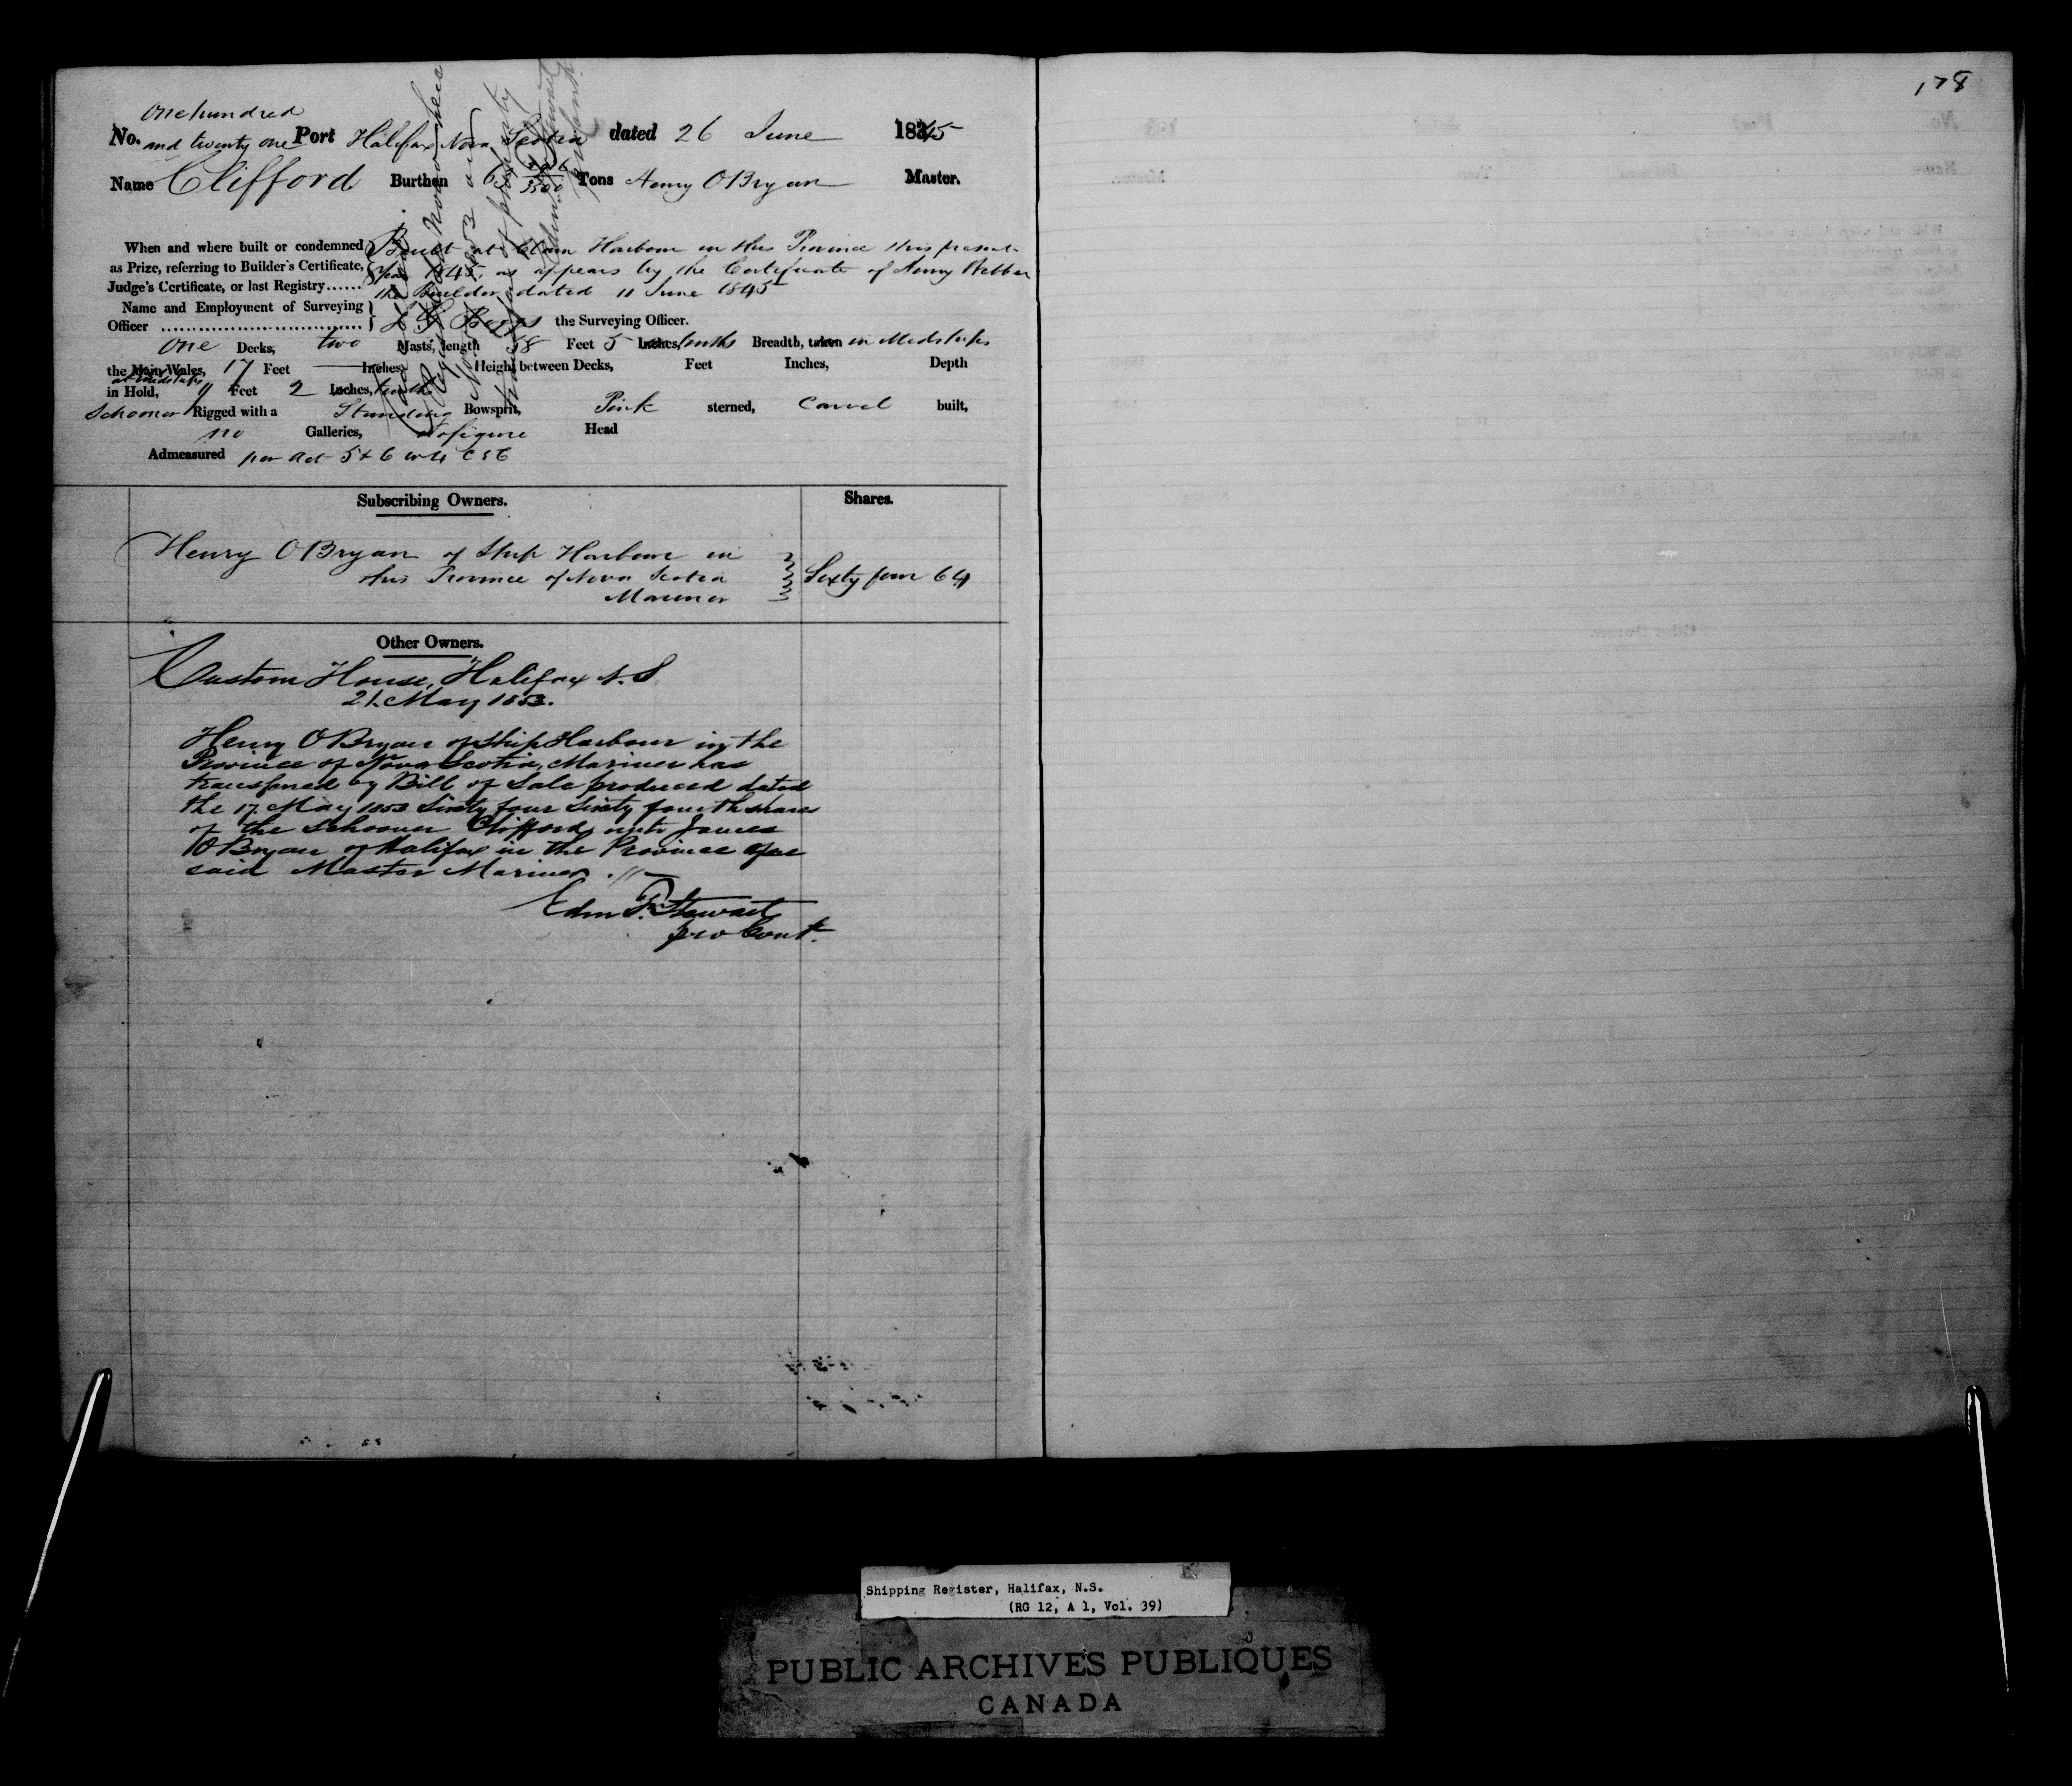 178
One hundred
No. and twenty one Port Halifax Nova Scotia dated 26 June 1845
Name Clifford Burthen 63 Tons Henry O Bryan Master.
When and where built or condemned as Prize, referring to Builder's Certificate, Judge's Certificate, or last Registry......
Built at Clam Harbour in this Province this present
Year 1845, as appears by the Certificate of Henry Webber
the Builder dated 11 June 1845
Name and Employment of Surveying
Officer the Surveying Officer.
One Decks, two Masts, length 58 Feet 5 Inches, tenths Breadth, taken in Midships
the Main Wales, 17 Feet Inches, Height between Decks, Feet Inches, Depth
at Midships
in Hold, 9 Feet 2 Inches, tenths
Schooner Rigged with a Standing Bowsprit, Pink sterned, Carvel built,
no Galleries, No figure Head
Admeasured per Act 5 & 6 W 4 C 56
Subscribing Owners. Shares.
Henry O Bryan of Ship Harbour in
this Province of Nova Scotia Sixty four 64
Mariner
Other Owners.
Custom House, Halifax N.S
21 May 1853.
Henry O Bryan of Ship Harbour in the
Province of Nova Scotia, Mariner has
transferred by Bill of Sale produced dated
the 17 May 1853 Sixty four Sixty fourth shares
of the Schooner Clifford, unto James
O Bryan of Halifax in the Province
said Master Mariner.
Edm Stewart
pro Cont.
Shipping Register, Halifax, N.S.
(RG 12, A 1, Vol. 39)
PUBLIC ARCHIVES PUBLIQUES
CANADA